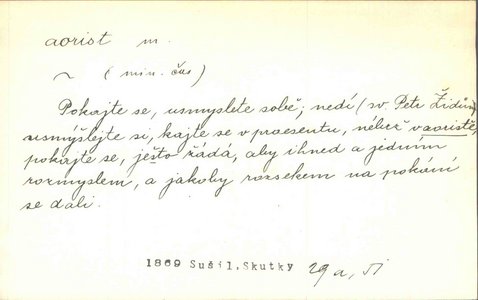 aorist m.
~ (min. čas)
Pokajte se, usmyslete sobě; nedí (sv. Petr Židům)
usmýšlejte si, kajte se v praesentu, nébrž v aoristě,
pokajte se, ješto řádá, aby ihned a jedním
rozmyslem, a jakoby rozsekem na pokání
se dali.
1869 Sušil, Skutky 29 a,